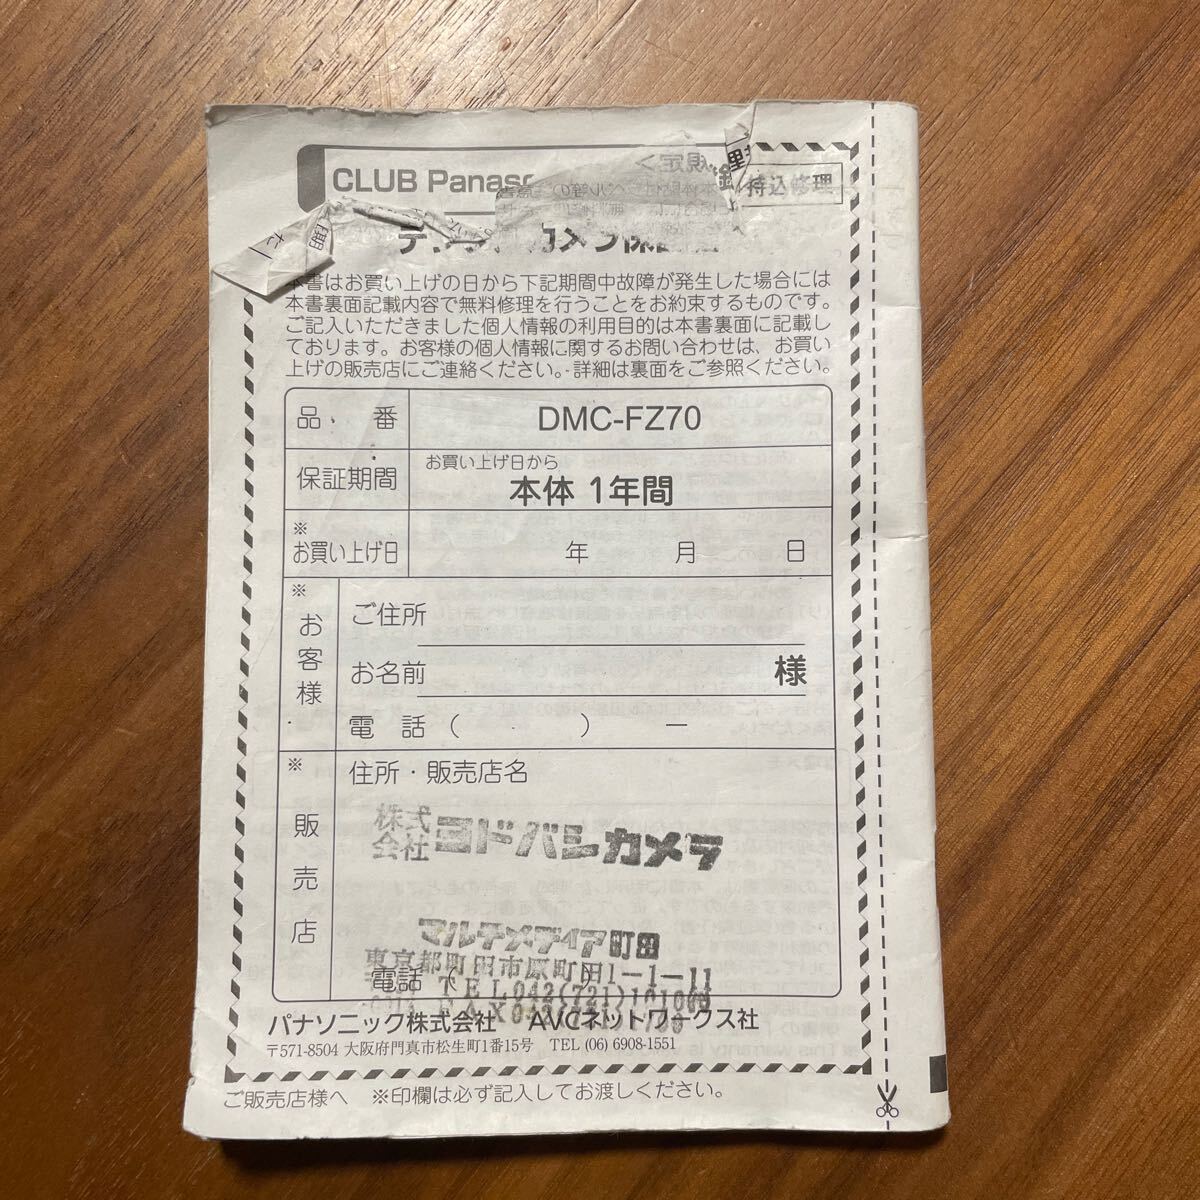 CLUB Panas
持込修理
本書はお買い上げの日から下記期間中故障が発生した場合には
本書裏面記載内容で無料修理を行うことをお約束するものです。
ご記入いただきました個人情報の利用目的は本書裏面に記載し
ております。お客様の個人情報に関するお問い合わせは、お買い
上げの販売店にご連絡ください。詳細は裏面をご参照ください。
品 番
DMC-FZ70
保証期間
お買い上げ日から
本体 1年間
※
お買い上げ日
年 月 日
※
お客様
ご住所
お名前 様
電話 ( ) ー
※
販売店
住所・販売店名
株式会社ヨドバシカメラ
マルチメディア町田
東京都町田市原町田1-1-11
電話 (
TEL042(721)1010
FAX042
パナソニック株式会社 AVCネットワークス社
〒571-8504 大阪府門真市松生町1番15号 TEL (06) 6908-1551
ご販売店様へ ※印欄は必ず記入してお渡しください。